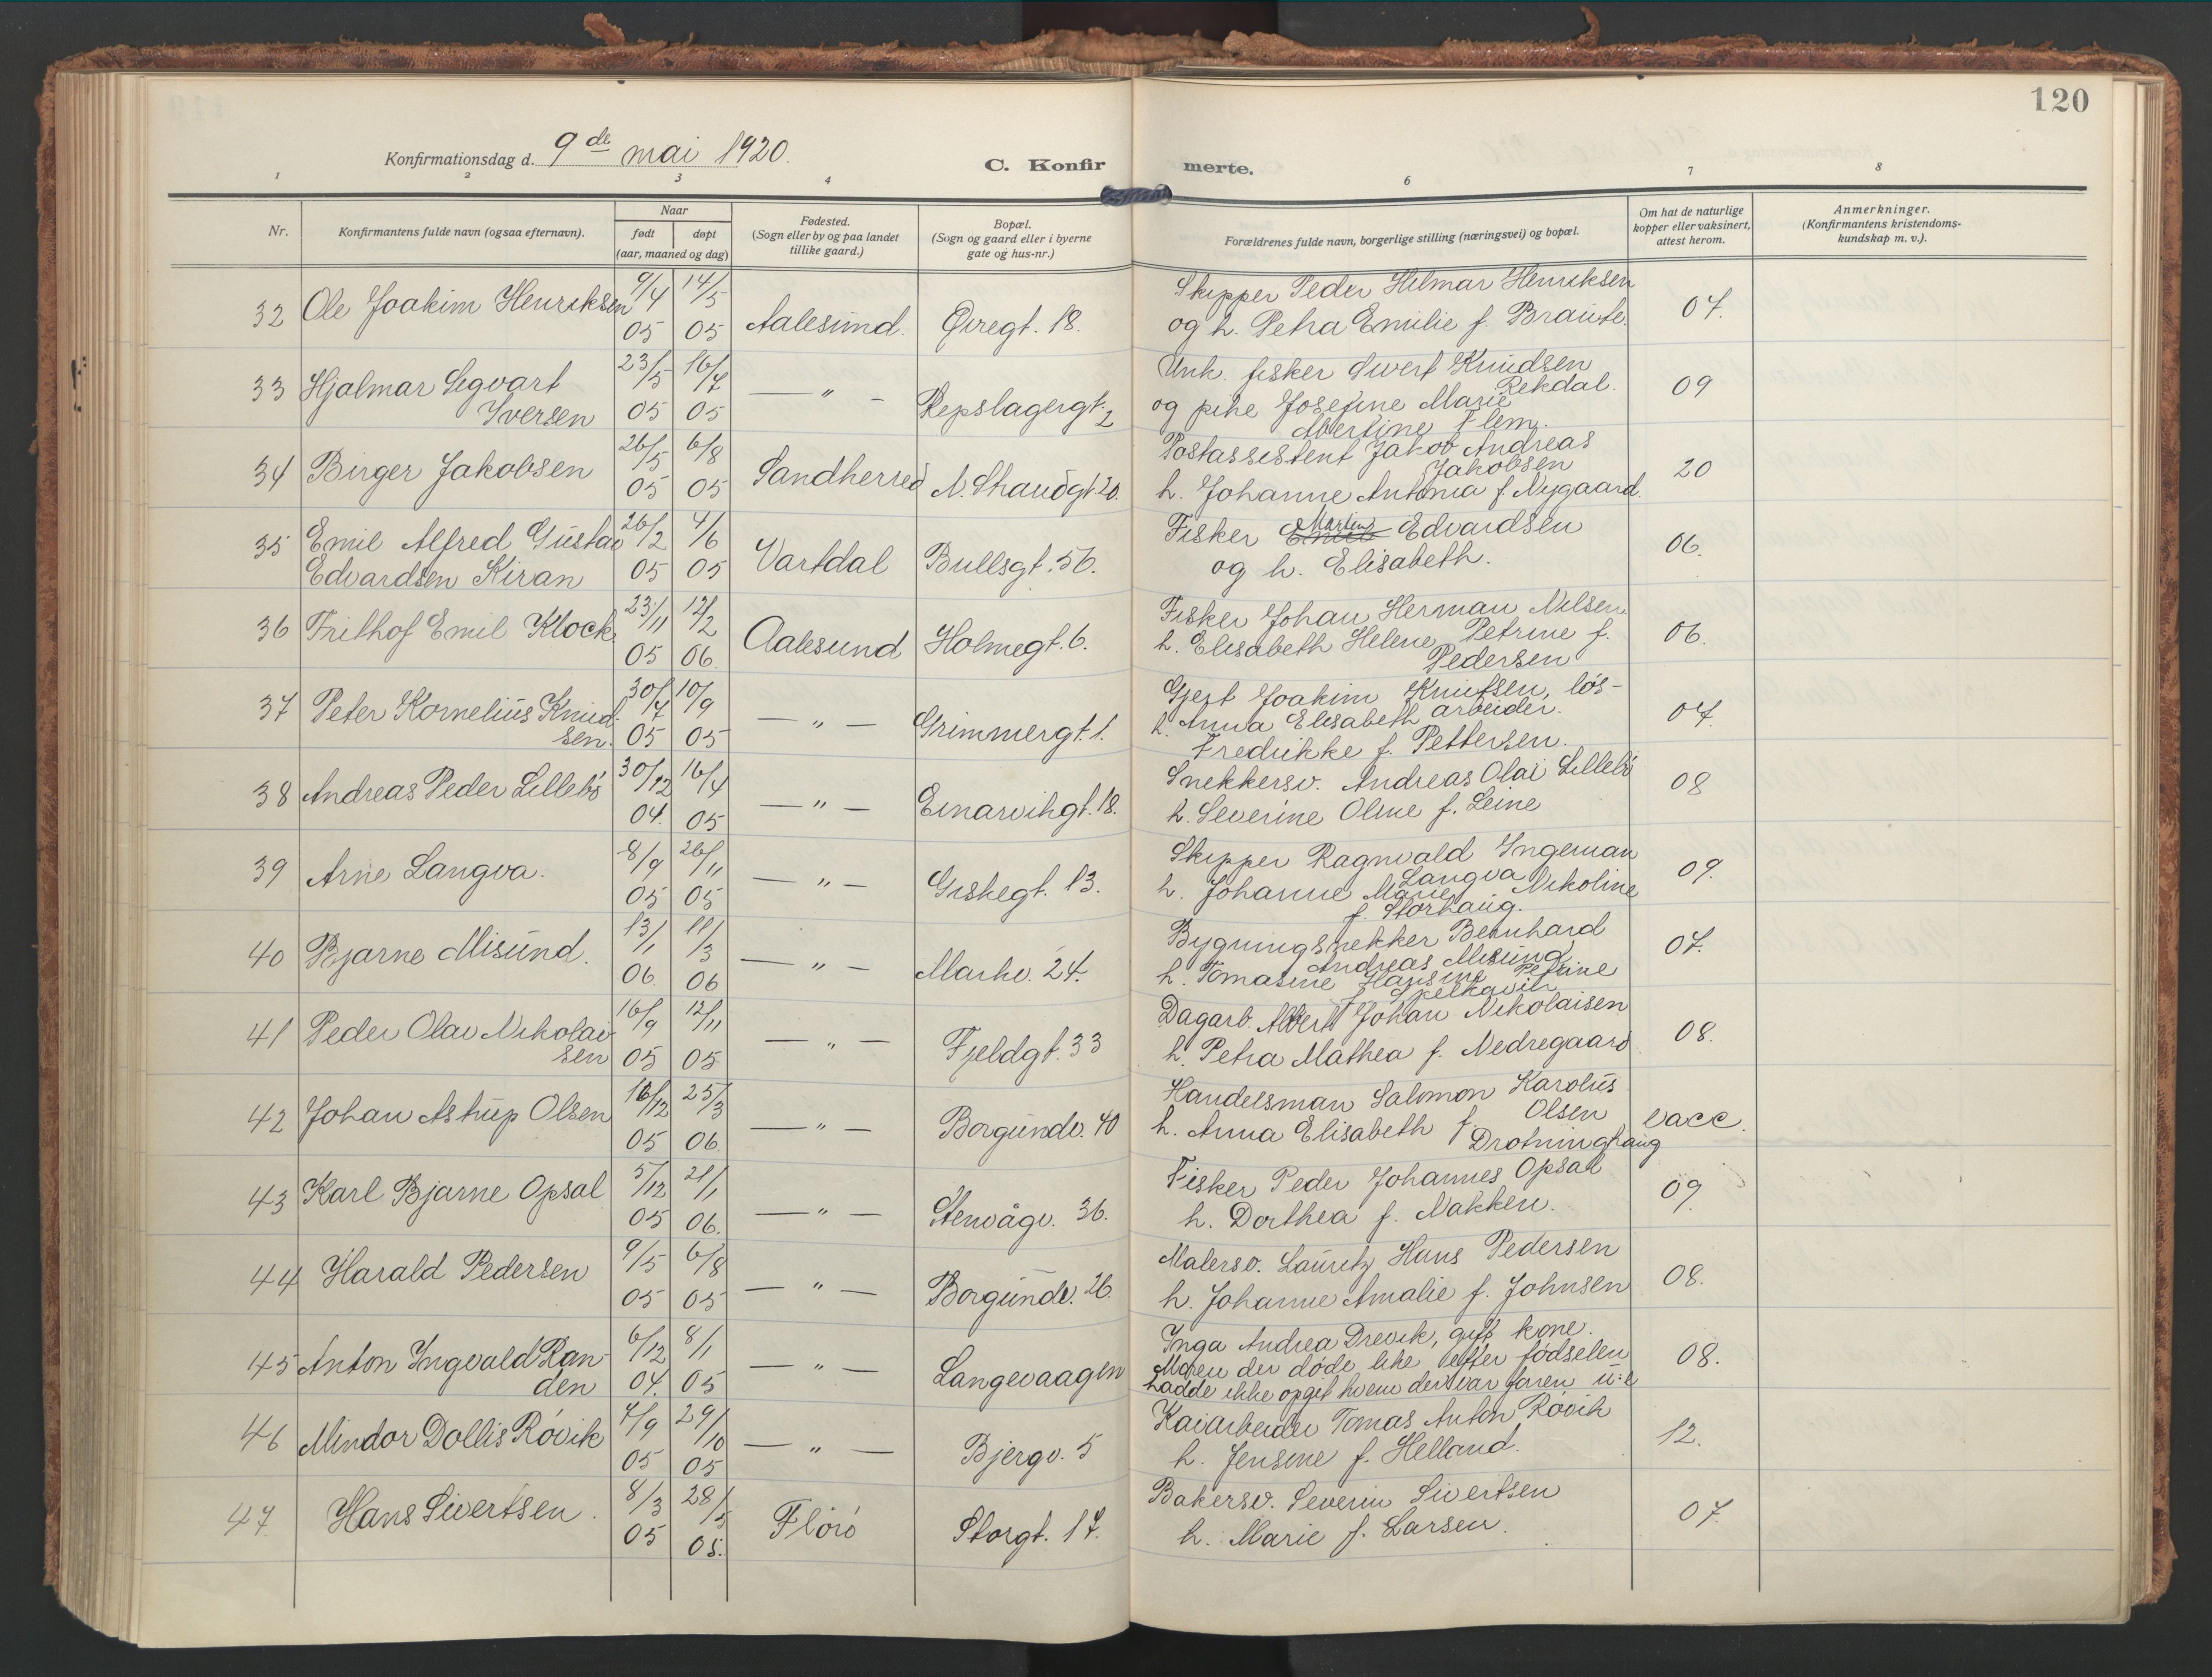 120
Konfirmationsdag d. 9de mai 1920.
C. Konfirmerte.
1 2 3 4 6 7 8
Nr.
Konfirmantens fulde navn (ogsaa efternavn).
Naar
født døpt
(aar, maaned og dag)
Fødested.
(Sogn eller by og paa landet
tillike gaard.)
Bopæl.
(Sogn og gaard eller i byerne
gate og hus-nr.)
Forældrenes fulde navn, borgerlige stilling (næringsvei) og bopæl.
Om hat de naturlige
kopper eller vaksinert,
attest herom.
Anmerkninger.
(Konfirmantens kristendoms-
kundskap m. v.).
32 Ole Joakim Henriksen 9/4 05 14/5 05 Aalesund. Øvregt. 18. Skipper Peder Hilmar Henriksen
og h. Petra Emilie f. Braute. 07.
33 Hjalmar Segvart
Iversen 23/5 05 16/7 05 — " — Repslagergt. 2 Unk. fisker Sivert Knudsen
Rekdal.
og pike Josefine Marie
Albertine Flem. 09
34 Birger Jakobsen 26/5 05 6/8 05 Sandherred N. Strandgt. 20. Postassistent Jakob Andreas
Jakobsen
h. Johanne Antonia f. Nygaard. 20
35 Emil Alfred Gustav
Edvardsen Kiran 26/2 05 4/6 05 Vartdal Bullsgt. 56. Fisker Martin Edvardsen
og h. Elisabeth. 06.
36 Frithof Emil Klock 23/11 05 12/2 06. Aalesund Holmegt. 6. Fisker Johan Herman Nilsen.
h. Elisabeth Helene Petrine f.
Pedersen 06.
37 Peter Kornelius Knud-
sen. 30/7 05 10/9 05 — " — Grimmergt. 1. Gjert Joakim Knutsen, løs-
arbeider.
h. Anna Elisabeth
Fredrikke f. Pettersen. 07.
38 Andreas Peder Lillebø 30/12 04. 16/4 05 — " — Einarvikgt. 18. Snekkersv. Andreas Olai Lillebø
h. Severine Oline f. Leine 08
39 Arne Langva. 8/9 05 26/11 05 — " — Giskegt. 13. Skipper Ragnvald Ingeman
Langva
h. Johanne Marie Nikoline
f. Storhaug. 09.
40 Bjarne Misund. 13/1 06. 11/3 06 — " — Markv. 24. Bygningsnekker Bernhard
Andreas Misund
h. Tomasine Hansine Petrine
f. Spelkavik 07.
41 Peder Olav Nikolai-
sen 16/9 05 12/11 05 — " — Fjeldgt. 33 Dagarb. Albert Johan Nikolaisen
h. Petra Mathea f. Nedregaard 08.
42 Johan Astrup Olsen 16/12 05 25/3 06. — " — Borgundv. 40 Handelsman Salomon Karolus
Olsen
h. Anna Elisabeth f.
Drotninghaug vacc.
43 Karl Bjarne Opsal 5/12 05 21/1 06. — " — Stenvågv. 36. Fisker Peder Johannes Opsal
h. Dorthea f. Nakken. 09.
44 Harald Pedersen 9/5 05 6/8 05 — " — Borgundv. 26. Malersv. Lauritz Hans Pedersen
h. Johanne Amalie f. Johnsen 08.
45 Anton Ingvald Ran-
den 6/12 04. 8/1 05 — " — Langevaagen Inga Andrea Drevik, gift kone.
Moren der døde like efter fødselen
hadde ikke opgit hvem der var faren 08.
46 Mindor Dollis Røvik 7/9 05 29/10 05 — " — Bjergv. 5 Kaiarbeider Tomas Anton Røvik
h. Jensine f. Helland. 12.
47. Hans Sivertsen. 8/3 05 28/5 05. Florø Storgt. 17. Bakersv. Severin Sivertsen
h. Marie f. Larsen. 07.